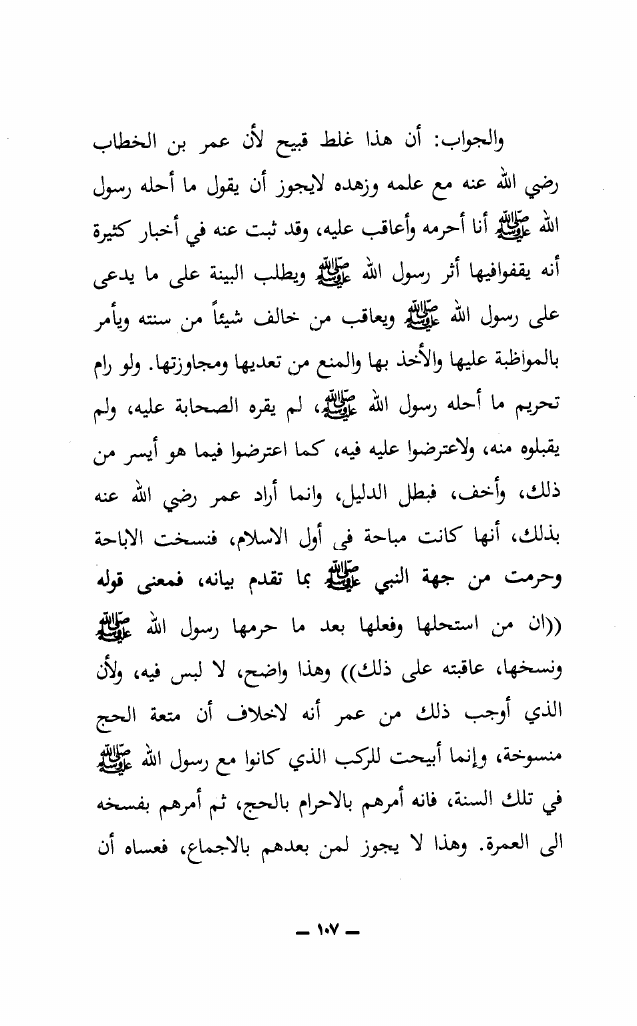 والجواب: أن هذا غلط قبيح لأن عمر بن الخطاب
رضي الله عنه مع علمه وزهده لايجوز أن يقول ما أحله رسول
الله ﷺ أنا أحرمه وأعاقب عليه، وقد ثبت عنه في أخبار كثيرة
أنه يقفوافيها أثر رسول الله ﷺ ويطلب البينة على ما يدعى
على رسول الله ﷺ ويعاقب من خالف شيئاً من سنته ويأمر
بالمواظبة عليها والأخذ بها والمنع من تعديها ومجاوزتها. ولو رام
تحريم ما أحله رسول الله ﷺ، لم يقره الصحابة عليه، ولم
يقبلوه منه، ولاعترضوا عليه فيه، كما اعترضوا فيما هو أيسر من
ذلك، وأخف، فبطل الدليل، وانما أراد عمر رضي الله عنه
بذلك، أنها كانت مباحة في أول الاسلام، فنسخت الاباحة
وحرمت من جهة النبي ﷺ بما تقدم بيانه، فمعنى قوله
((ان من استحلها وفعلها بعد ما حرمها رسول الله ﷺ
ونسخها، عاقبته على ذلك)) وهذا واضح، لا لبس فيه، ولأن
الذي أوجب ذلك من عمر أنه لاخلاف أن متعة الحج
منسوخة، وإنما أبيحت للركب الذي كانوا مع رسول الله ﷺ
في تلك السنة، فانه أمرهم بالاحرام بالحج، ثم أمرهم بفسخه
الى العمرة. وهذا لا يجوز لمن بعدهم بالاجماع، فعساه أن
— ١٠٧ —